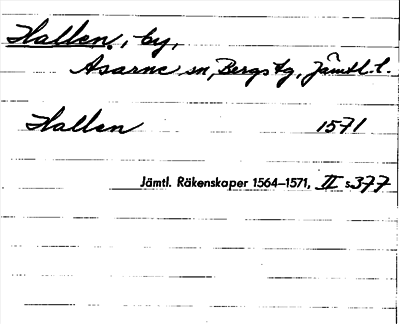 Hallen, by,
Asarne sn, Bergs tg, Jämtl. l.
Hallen 1571
Jämtl. Räkenskaper 1564–1571, II s 377